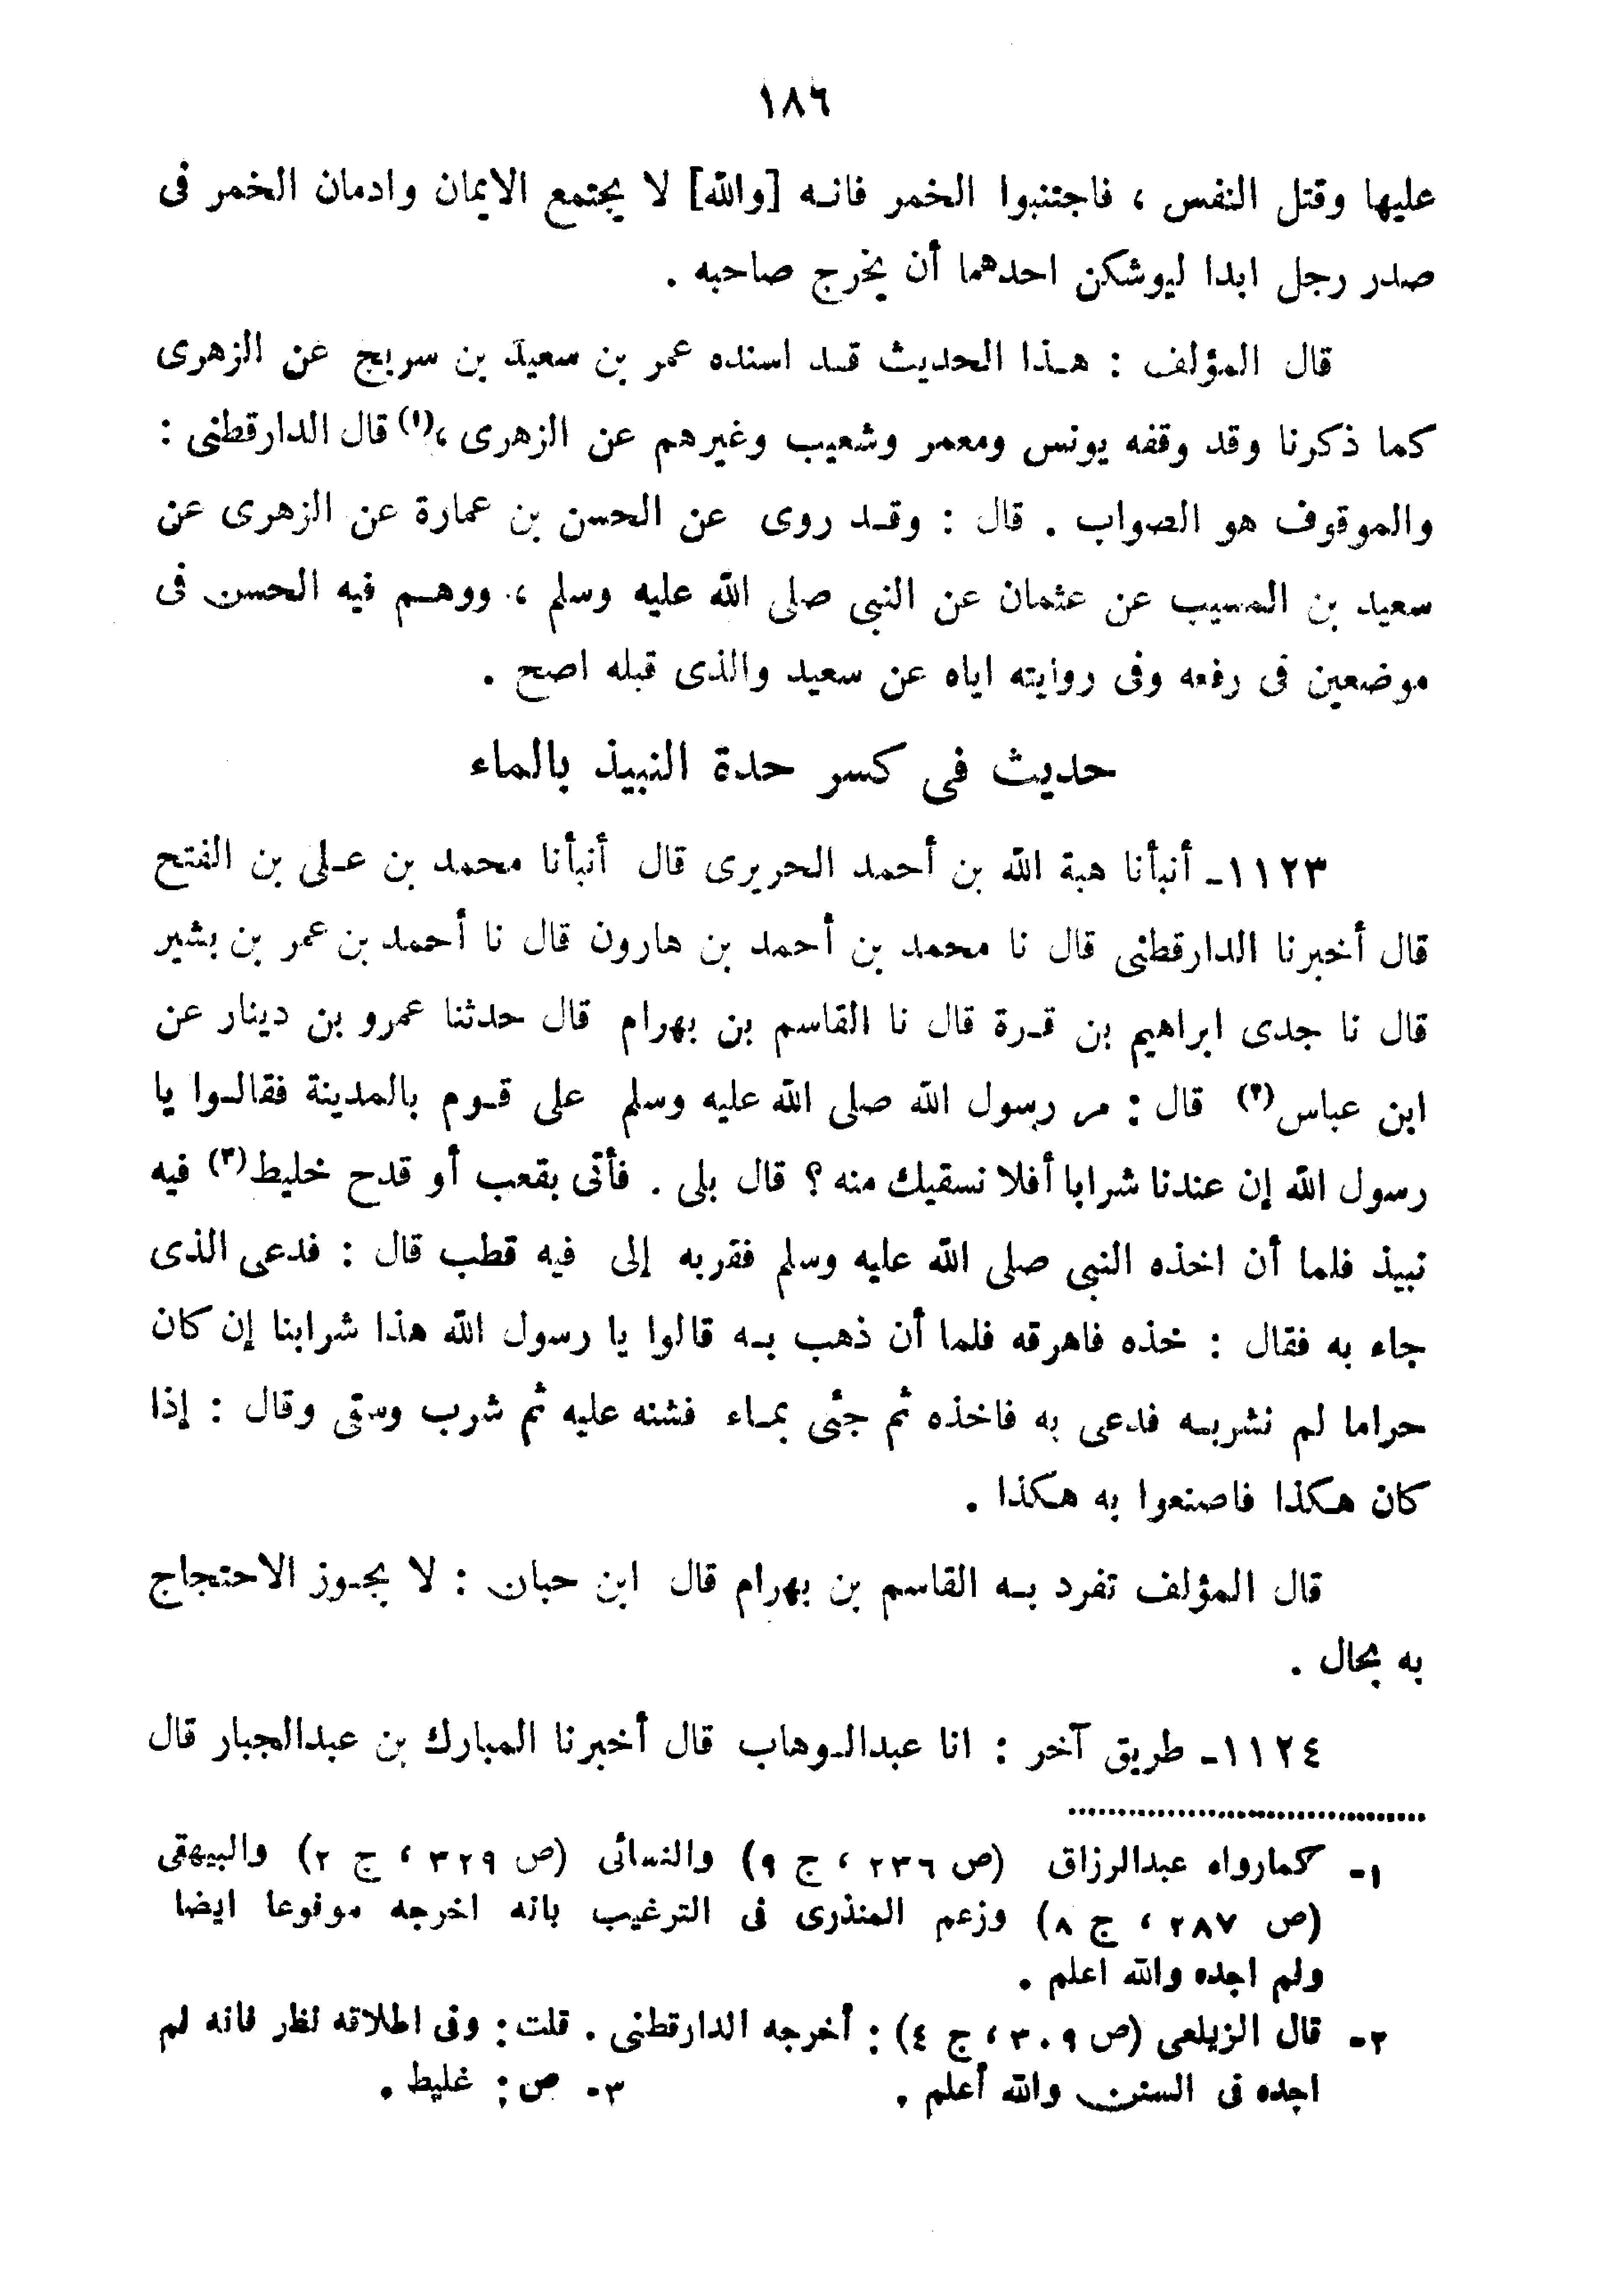 ١٨٦
عليها وقتل النفس ، فاجتنبوا الخمر فانه [والله] لا يجتمع الايمان وادمان الخمر فى
صدر رجل ابدا ليوشكن احدهما أن يخرج صاحبه .
قال المؤلف : هذا الحديث قد اسنده عمر بن سعيد بن سريج عن الزهرى
كما ذكرنا وقد وقفه يونس ومعمر وشعيب وغيرهم عن الزهرى ،(١) قال الدارقطنى :
والموقوف هو الصواب . قال : وقد روى عن الحسن بن عمارة عن الزهرى عن
سعيد بن المسيب عن عثمان عن النبى صلى الله عليه وسلم ، ووهم فيه الحسن فى
موضعين فى رفعه وفى روايته اياه عن سعيد والذى قبله اصح .
حديث فى كسر حدة النبيذ بالماء
١١٢٣ـ أنبأنا هبة الله بن أحمد الحريرى قال أنبأنا محمد بن على بن الفتح
قال أخبرنا الدارقطنى قال نا محمد بن أحمد بن هارون قال نا أحمد بن عمر بن بشير
قال نا جدى ابراهيم بن قرة قال نا القاسم بن بهرام قال حدثنا عمرو بن دينار عن
ابن عباس(٢) قال : مر رسول الله صلى الله عليه وسلم على قوم بالمدينة فقالوا يا
رسول الله إن عندنا شرابا أفلا نسقيك منه ؟ قال بلى . فأتى بقعب أو قدح خليط(٣) فيه
نبيذ فلما أن اخذه النبى صلى الله عليه وسلم فقربه إلى فيه قطب قال : فدعى الذى
جاء به فقال : خذه فاهرقه فلما أن ذهب به قالوا يا رسول الله هذا شرابنا إن كان
حراما لم نشربه فدعى به فاخذه ثم جئى بماء فشنه عليه ثم شرب وسقى وقال : إذا
كان هكذا فاصنعوا به هكذا .
قال المؤلف تفرد به القاسم بن بهرام قال ابن حبان : لا يجوز الاحتجاج
به بحال .
١١٢٤ـ طريق آخر : انا عبدالوهاب قال أخبرنا المبارك بن عبدالجبار قال
١ـ كمارواه عبدالرزاق (ص ٢٣٦ ، ج ٩) والنسائى (ص ٣٢٩ ، ج ٢) والبيهقى
(ص ٢٨٧ ، ج ٨) وزعم المنذرى فى الترغيب بانه اخرجه موفوعا ايضا
ولم اجده والله اعلم .
٢ـ قال الزيلعى (ص ٣٠٩ ، ج ٤) : أخرجه الدارقطنى . قلت : وفى اطلاقه نظر فانه لم
اجده فى السنن والله أعلم . ٣ـ ص : غليط .